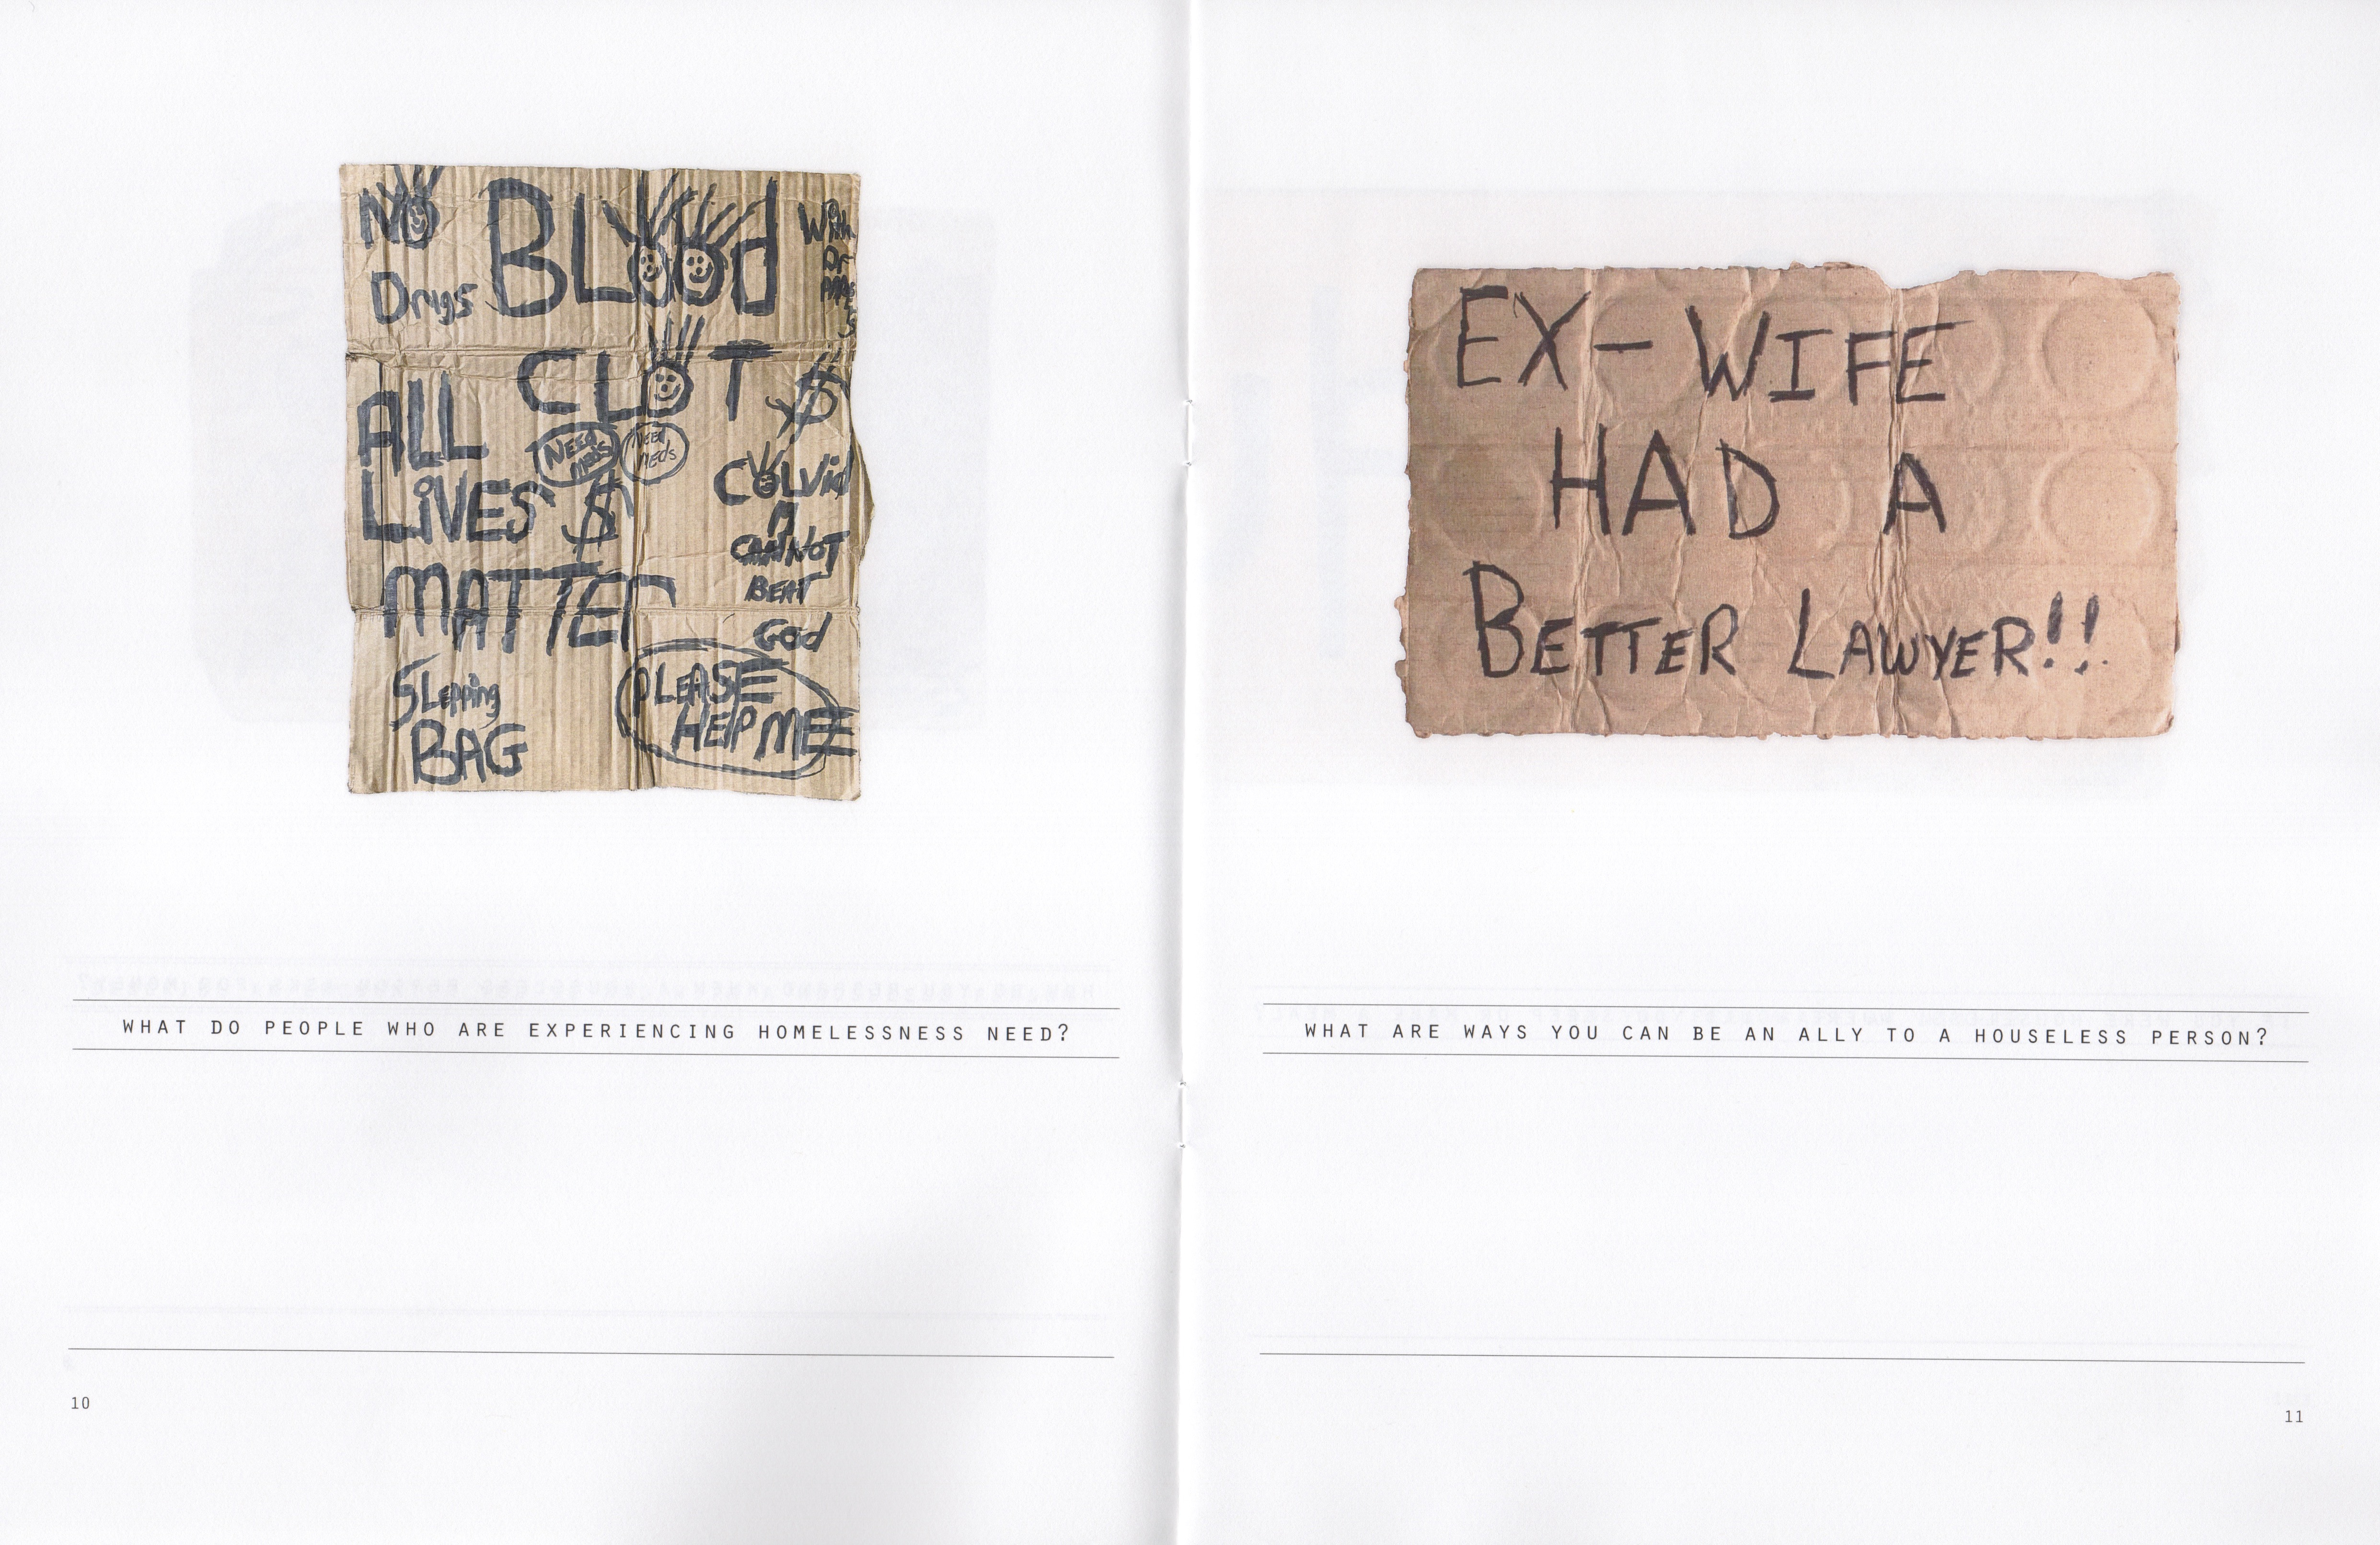 NO
Drugs
BLOOd
With
Dr
CLOT $
ALL
LIVES $
MATTER
NEED meds
NEED meds
COLVid
CANNOT
BEAT
God
SLepping
BAG
PLEASE
HElP ME
WHAT DO PEOPLE WHO ARE EXPERIENCING HOMELESSNESS NEED?
10
EX-WIFE
HAD A
BETTER LAWYER!!
WHAT ARE WAYS YOU CAN BE AN ALLY TO A HOUSELESS PERSON?
11